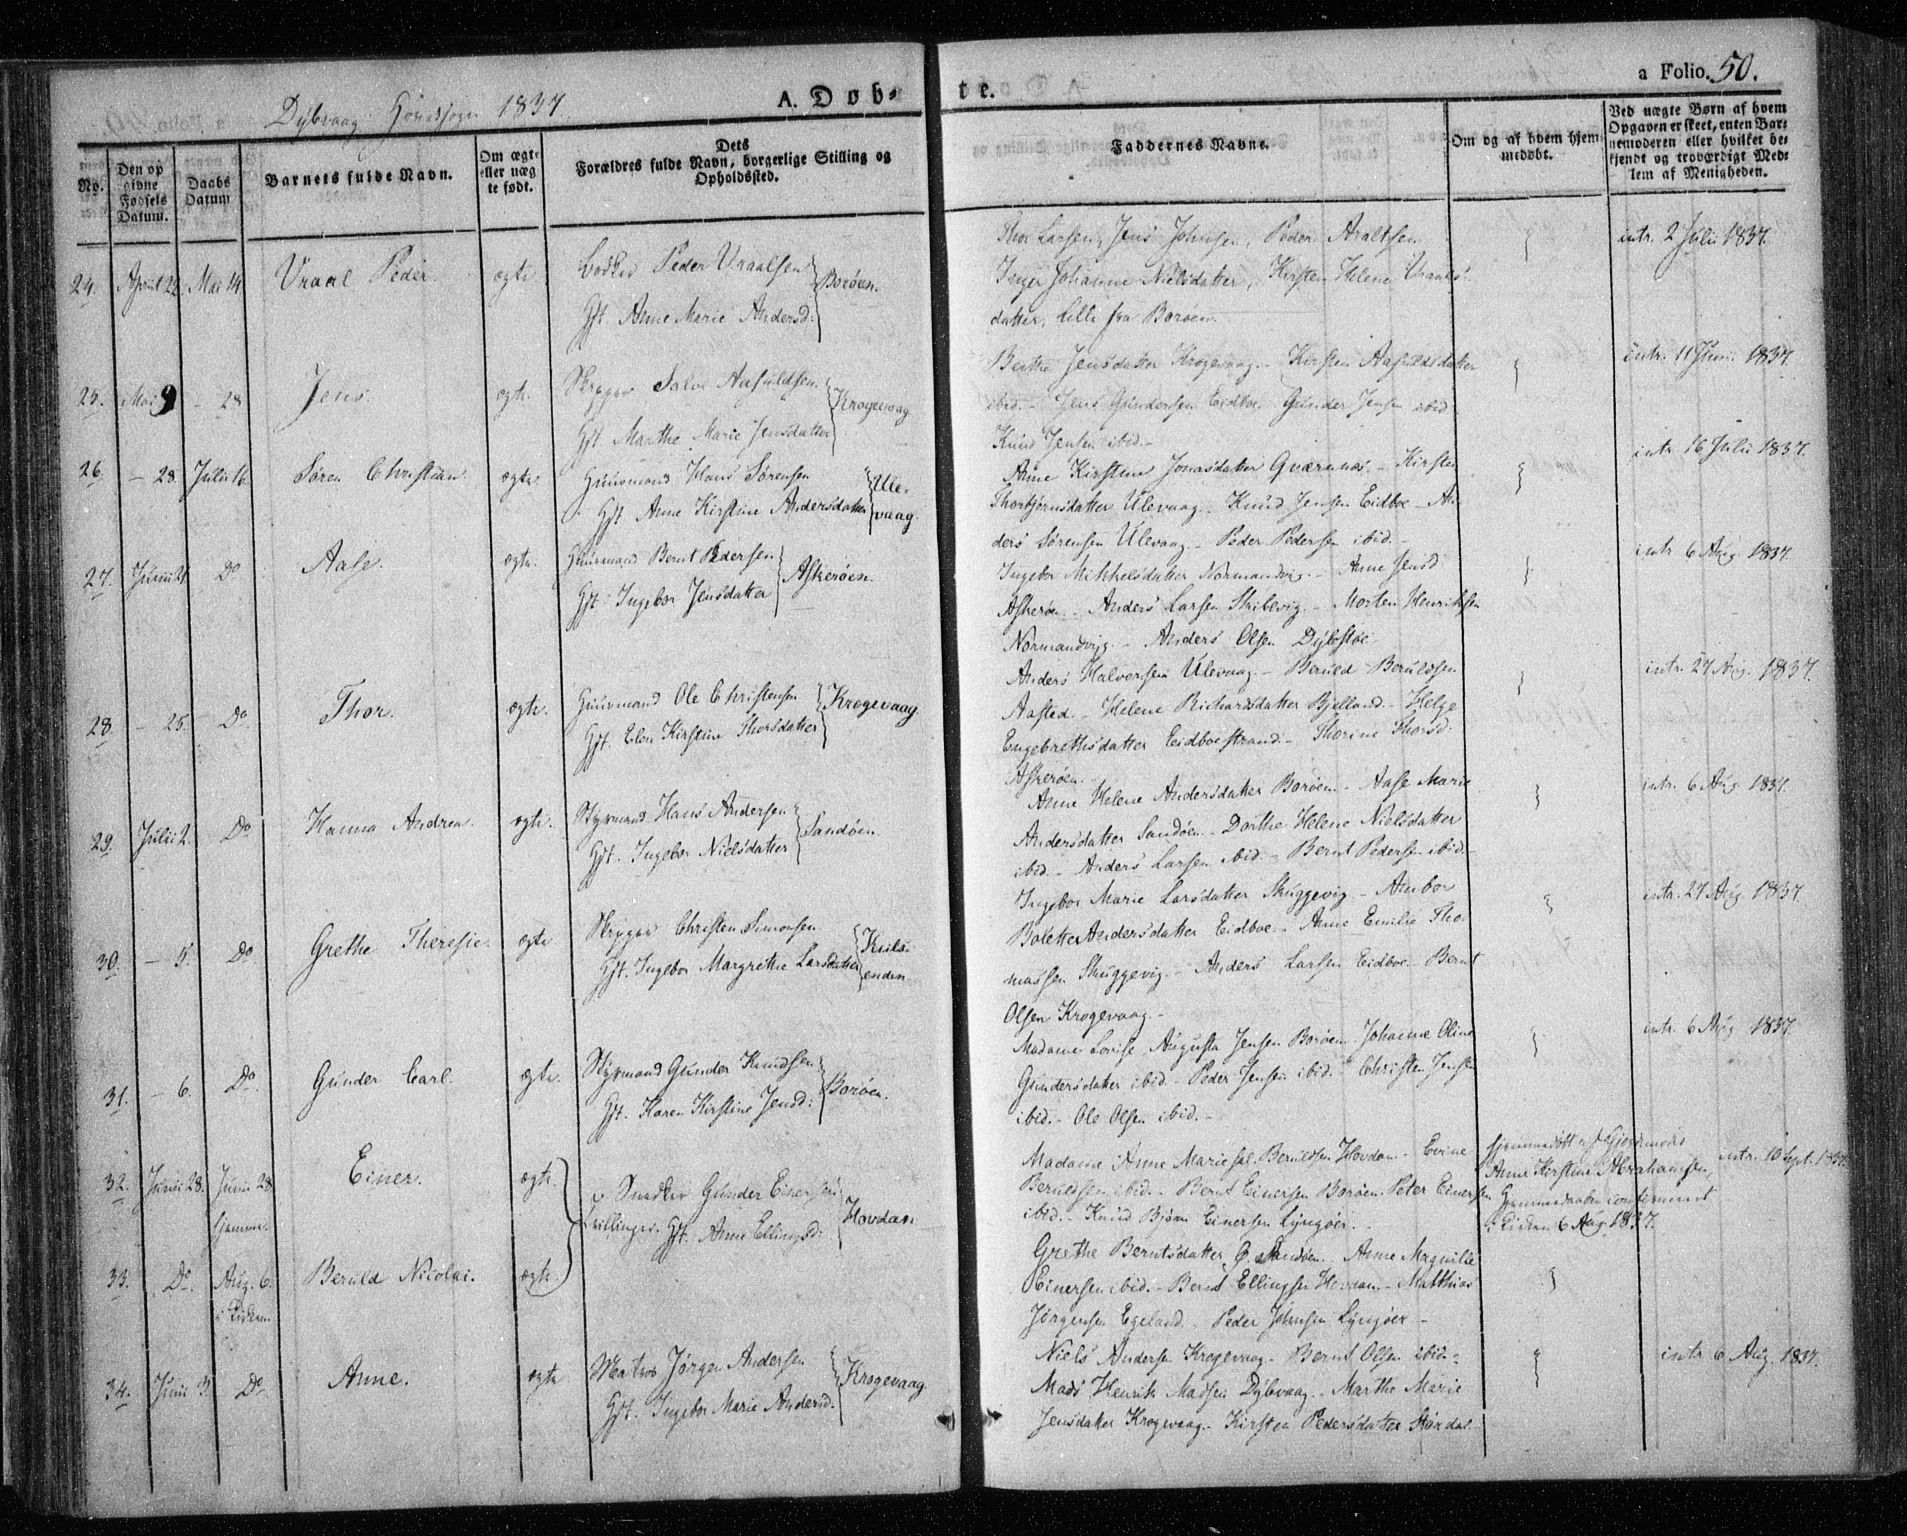 Dybvaag Hovedsogn 1837.
A. Døb-
te.
a Folio. 50.
No.
Den op
givne
Fødsels
Datum.
Daabs
Datum
Barnets fulde Navn.
Om ægte
eller uæg
te født.
Dets
Forældres fulde Navn, borgerlige Stilling og
Opholdssted.
Faddernes Navne.
Om og af hvem hjem-
medøbt.
Ved uægte Børn af hvem
Opgaven er skeet, enten Bar-
nemoderen eller hvilket be-
kjendt og troværdigt Med-
lem af Menigheden.
24. April 22. Mai 14 Uraal Peder. ægte
Peder Uraalsen
Gft. Anne Marie Andersd:
Borøen.
Thor Larsen, Jens Johnsen, Peder
Inger Johanne Nielsdatter, Kirsten Helene Uraals-
datter, fra Borøen.
intr. 2 Julii 1837.
25. Mai 9 - 28 Jens. ægte.
Salve Aasuldsen
Gft. Marthe Marie Jensdatter
Krogevaag
Berthe Jensdatter Krogevaag - Kirsten Aasuldsdatter
ibid. - Jens Gundersen Eidboe - Gunder Jensen ibid
Knud Jensen ibid. -
intr. 11 Juni 1837.
26. - 28. Julii 16. Søren Christian ægte
Huusmand Hans Sørensen
Gft. Anne Kirstine Andersdatter
Ule-
vaag.
Anne Kirstine Jonasdatter Qværnnæs. - Kirsten
Thorbjørnsdatter Ulevaag. Knud Jensen Eidboe - An-
ders Sørensen Ulevaag - Peder Pedersen ibid. -
intr 16 Julii 1837.
27. Junii 21 Do Aase. ægte.
Huusmand Bernt Pedersen
Gft. Ingebor Jensdatter
Askerøen.
Ingebor Mikkelsdatter Normandvig. - Anne Jensd
Askerøen - Anders Larsen Skibevig. - Morten Henriksen
Normandvig. - Anders Olsen Dybestøe
intr 6 Aug. 1837.
28. - 25. Do Thor. ægte.
Huusmand Ole Christensen
Gft. Elen Kirstine Thorsdatter
Krogevaag
Anders Halvorsen Ulevaag. - Beruld Beruldsen
Aasted. - Helene Richardsdatter Bjelland. - Helge
Engebrethsdatter Eidboestrand. - Thorine Thorsd.
Askerøen. -
intr. 27 Aug. 1837.
29. Julii 2. Do Hanna Andrea. ægte.
Styrmand Hans Andersen
Gft. Ingebor Nielsdatter
Sandøen.
Anne Helene Andersdatter Borøen. - Aase Marie
Andersdatter Sandøen. - Dorthe Helene Nielsdatter
ibid. - Anders Larsen ibid. - Bernt Pedersen ibid. -
intr. 6 Aug. 1837.
30. - 5. Do Grethe Theresie. ægte
Christen Simonsen
Gft. Ingebor Margrethe Larsdatter
Ingebor Marie Larsdatter Skuggevig. - Ambor
Bolette Andersdatter Eidboe. - Anne Emilie Tho-
massen Skuggevig. - Anders Larsen Eidboe - Bernt
Olsen Krogevaag. -
intr. 27 Aug 1837.
31. - 6. Do. Gunder Carl. ægte.
Styrmand Gunder Knudsen
Gft. Karen Kirstine Jensd:
Borøen.
Madame Lovise Augusta Jensen Borøen. Johanne Oline
Gundersdatter ibid. - Peder Jensen ibid. - Christen Jensen
ibid. - Ole Olsen ibid. -
intr. 6 Aug 1837.
32. Junii 28. Junii 28 hjemme. Einer. ægte.
Smedker Gunder Einersen
Tvillinger. Gft. Anne Ellingsd:
Hovdan
Madame Anne Marie sal. Beruldsen Hovdan - Evine
Beruldsen ibid. - Bernt Einersen Borøen. Peter Einersen
ibid. - Knud Bjørn Einersen Lyngøer. -
Hjemmedøbt af Gjordemoder
Anne Kirstine Abrahamsen,
Hjemmedaaben confirmeret
i Kirken 6 Aug. 1837.
intr. 10 Sept. 1837.
33. Do. Aug. 6. i Kirken Beruld Nicolai. ægte
Grethe Berntsdatter Sandøen. - Anne
Einersen ibid. - Bernt Ellingsen Hovdan - Matthias
Jørgensen Egeland. - Peder Johnsen Lyngøer -
34. Junii 3. Do. Anne. ægte
Matros Jørgen Andersen
Gft. Ingebor Marie Andersd.
Krogevaag
Niels Andersen Krogevaag - Bernt Olsen ibid. -
Mads Henrik Madsen Dybvaag. - Marthe Marie
Jensdatter Krogevaag - Kirsten Pedersdatter Støndal
intr. 6 Aug. 1837.